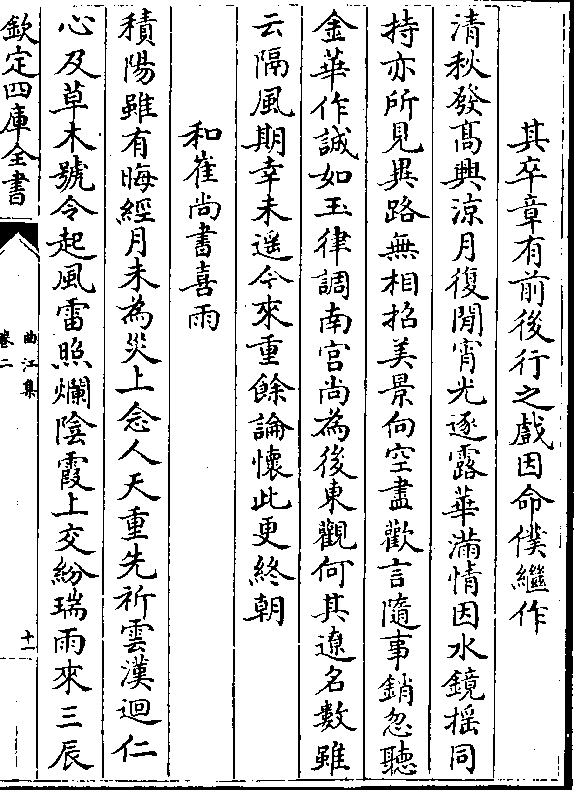 其卒章有前後行之戲因命僕繼作
清秋發髙興涼月復閒宵光逐露華滿情因水鏡揺同
持亦所見異路無相招美景向空盡歡言隨事銷忽聽
金華作誠如玉律調南宫尚為後東觀何其遼名數雖
云隔風期幸未遥今來重餘論懐此更終朝
和崔尚書喜雨
積陽雖有晦經月未為災上念人天重先祈雲漢迴仁
心及草木號令起風雷照爛隂霞上交紛瑞雨來三辰
欽定四庫全書
曲江集
卷二
十一